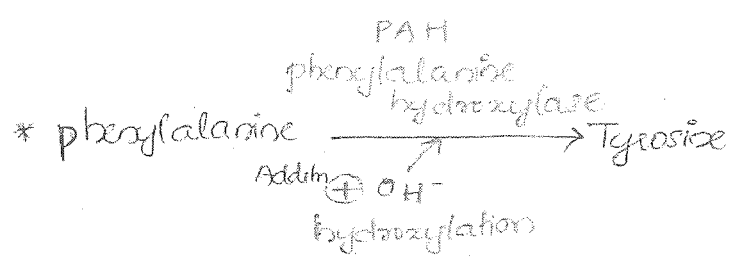 PAH
phenylalanine
hydroxylase
* phenylalanine → Tyrosine
Additn ⊕ OH⁻
hydroxylation